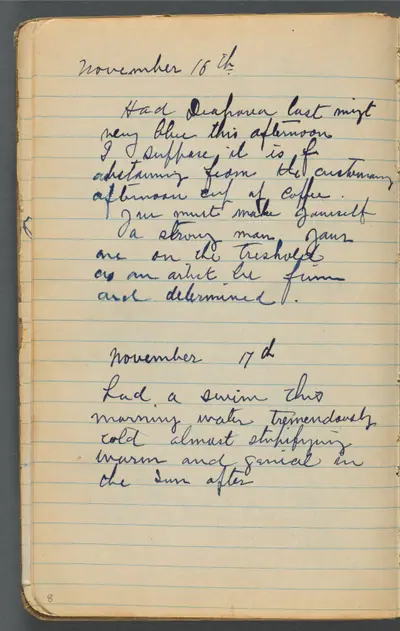 November 16 th
Had Diaforea last nigt
very blue this afternoon
I suppose it is f
abstaining from the customary
afternoon cup of coffee.
You must make yourself
a strong man, your
are on the treshold
as an artist be firm
and determined.
November 17 th
had a swim this
morning water tremendously
cold almost stupifying
warm and genial in
the sun after
8